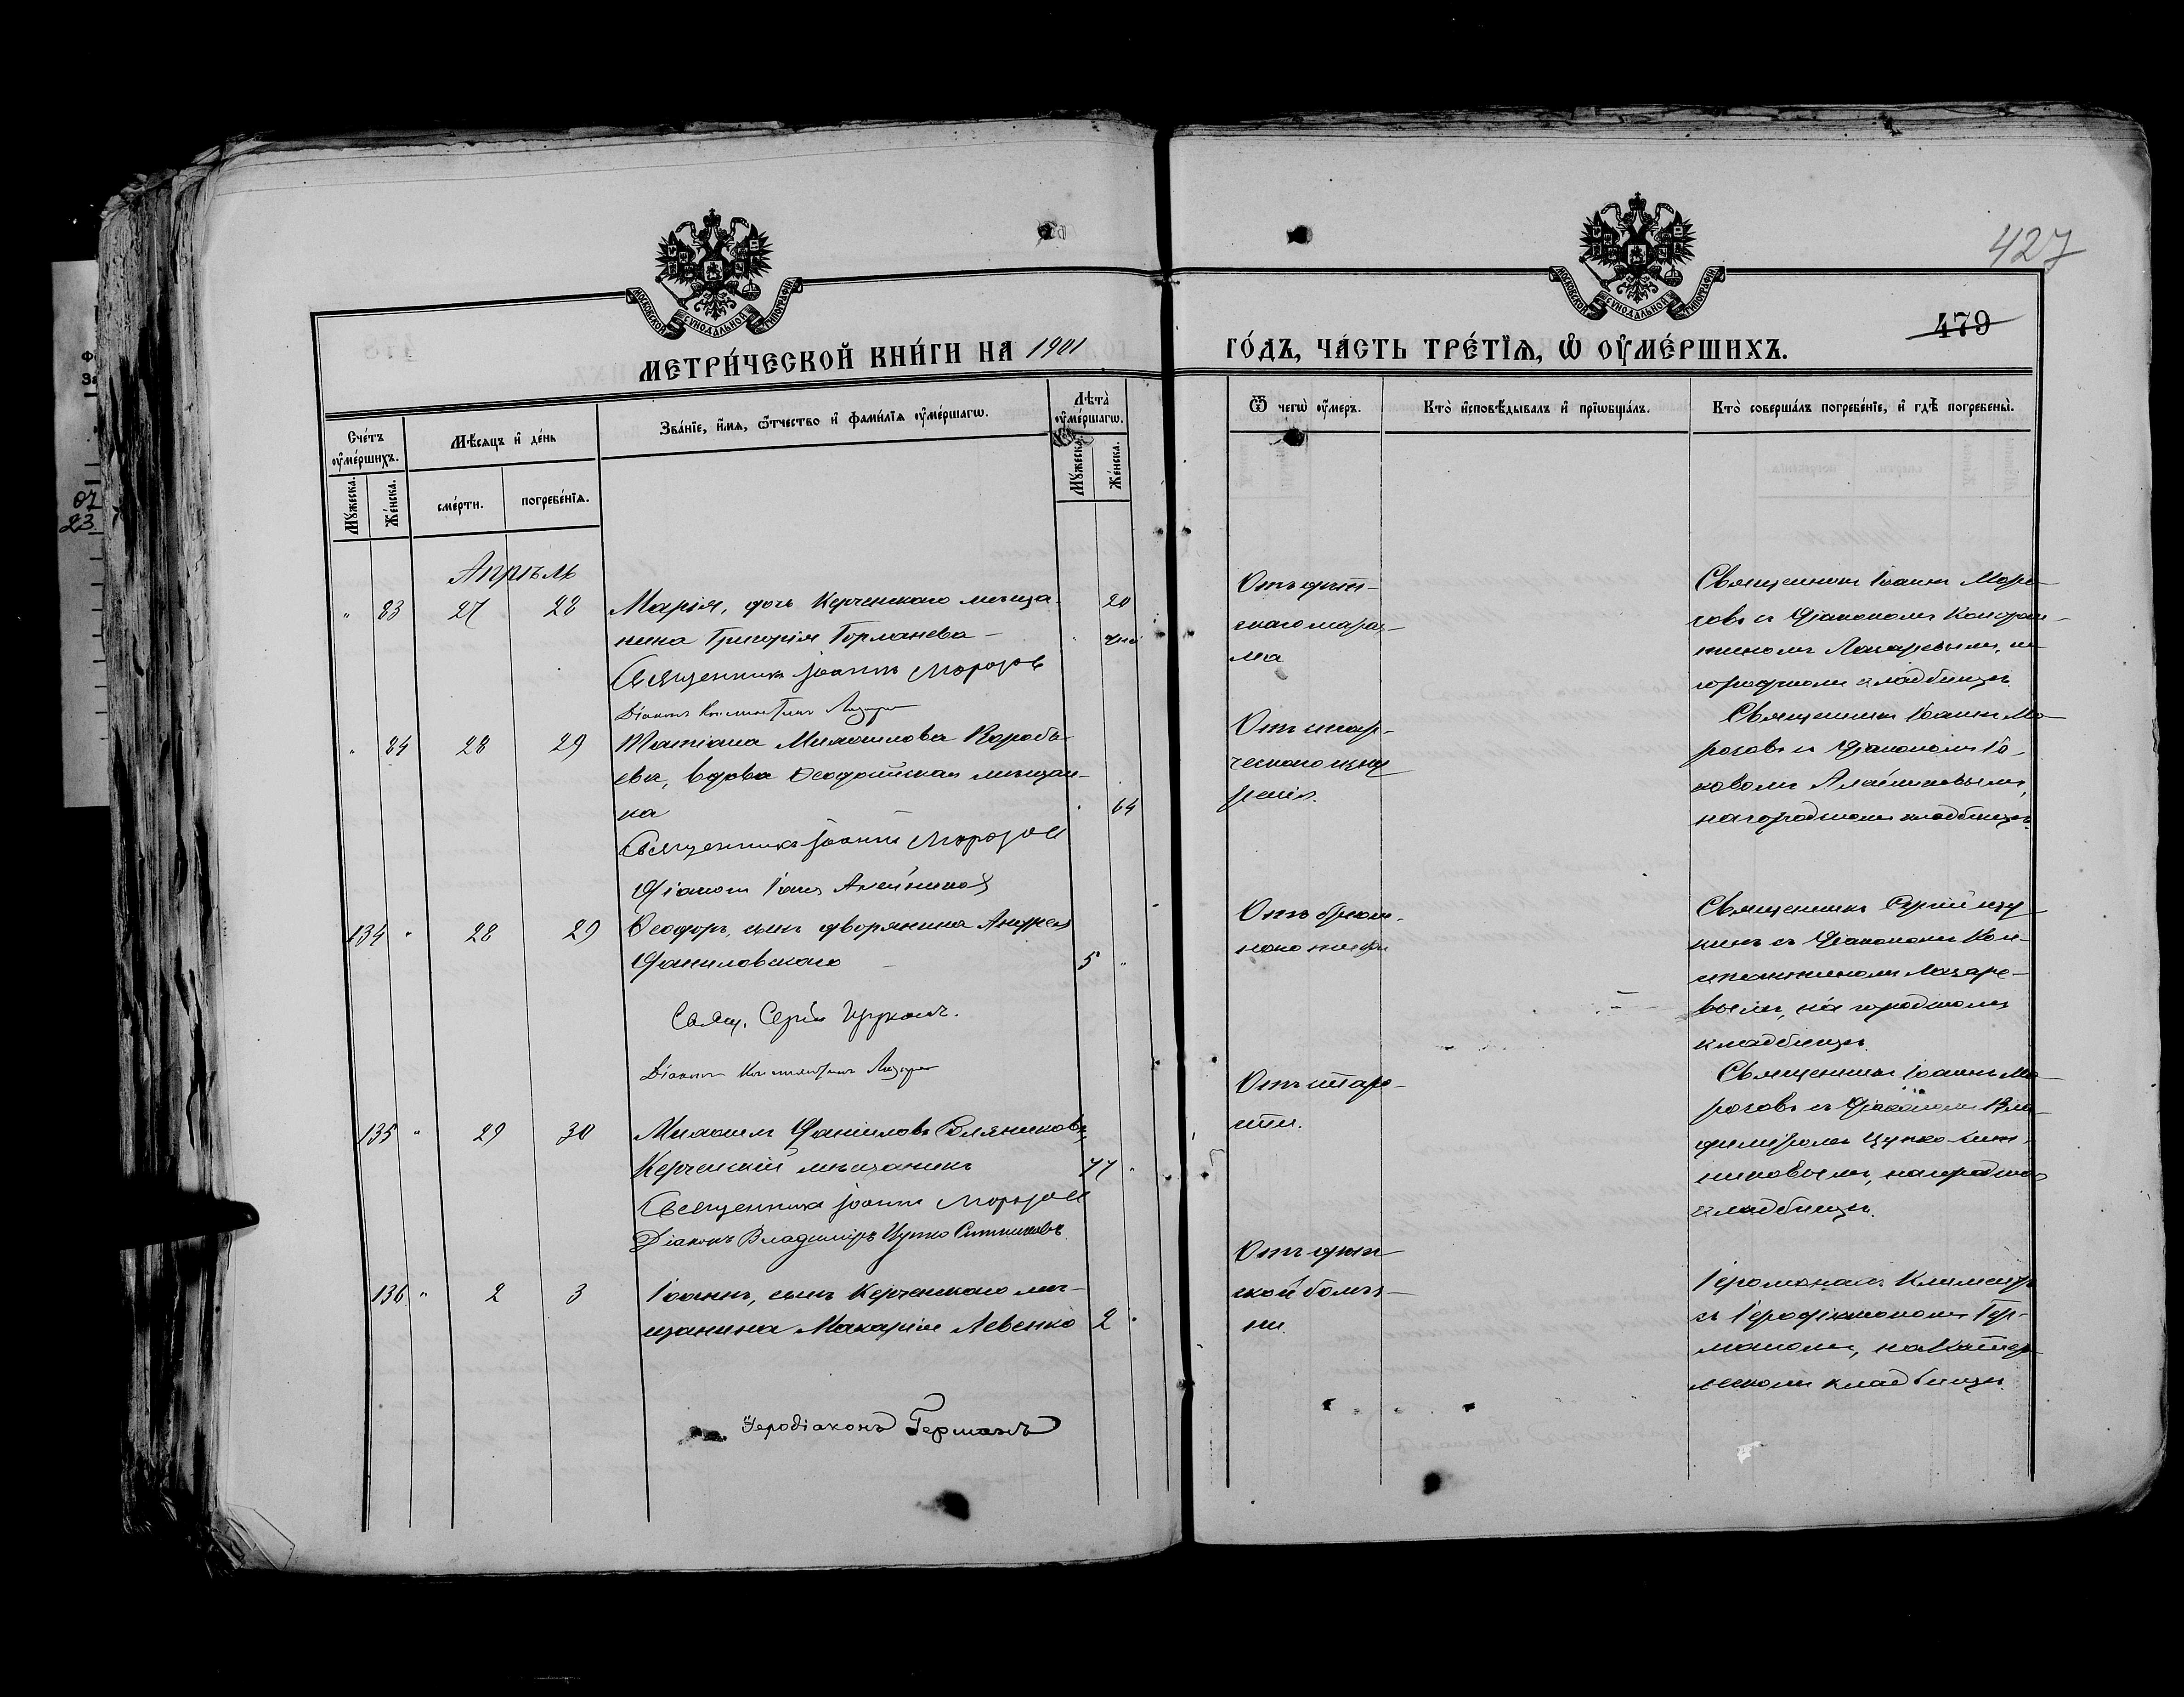 427
479
МОСКОВСКОЙ СѴНОДАЛЬНОЙ ТИПОГРАФІИ
МОСКОВСКОЙ СѴНОДАЛЬНОЙ ТИПОГРАФІИ
МЕТРИ́ЧЕСКОЙ КНИ́ГИ НА 1901 ГО́ДЪ, ЧА́СТЬ ТРЕ́ТЇѦ, Ѡ҆ ОУ҆МЕ́РШИХЪ.
Сче́тъ оу҆ме́ршихъ.
Мꙋ́жеска.
Же́нска.
Мѣ́сяцъ и҆ де́нь
сме́рти.
погребе́нїѧ.
Зва́нїе, и҆́мѧ, ѻ҆́тчество и҆ фами́лїѧ оу҆ме́ршагѡ.
Лѣта̀ оу҆ме́ршагѡ.
Мꙋ́жеска.
Же́нска.
Ѿ чегѡ̀ оу҆́меръ.
Кто̀ и҆сповѣ́дывалъ и҆ прїѡбща́лъ.
Кто̀ соверша́лъ погребе́нїе, и҆ гдѣ̀ погребены̀.
Апрѣль
" 83 27 28 Марія, дочь Керченскаго мѣща-
нина Григорія Горманева
20 дней
Священникъ Іоаннъ Морозовъ
Діаконъ Константинъ Лазарев
Отъ дѣт-
скаго мараз-
ма
Священникъ Іоаннъ Моро-
зовъ съ Діакономъ Констан-
тиномъ Лазаревымъ, на
городскомъ кладбищѣ.
" 84 28 29 Татіана Михаилова Воробь-
ева, вдова Ѳеодосійская мѣщан-
ка
64
Священникъ Іоаннъ Морозовъ
Діаконъ Іаковъ Алейников
Отъ стар-
ческаго изну
ренія.
Священникъ Іоаннъ Мо-
розовъ съ Діакономъ Іа-
ковомъ Алейниковымъ,
на городскомъ кладбищѣ.
134 " 28 29 Ѳеодоръ, сынъ дворянина Андрея
Даниловскаго
5 "
Свящ. Сергій
Діаконъ Константинъ Лазарев
Отъ брюш-
ного тифа
Священникъ Сергій
съ Діакономъ Кон-
стантиномъ Лазаре-
вымъ, на городскомъ
кладбищѣ.
135 " 29 30 Михаилъ Даніиловъ
Керченскій мѣщанинъ
77 "
Священникъ Іоаннъ Морозовъ
Діаконъ Владиміръ Цупко Ситниковъ
Отъ старо-
сти.
Священникъ Іоаннъ Мо-
розовъ съ Діакономъ Вла-
диміромъ Цупко Сит-
никовымъ, на городском
кладбищѣ.
136 " 2 3 Іоаннъ, сынъ Керченскаго мѣ-
щанина Макарія Левенко
2 "
Іеродіаконъ Германъ
Отъ дѣт
ской болѣз-
ни.
Іеромонахъ Климентъ
съ Іеродіакономъ Гер-
маномъ, на
кладбищѣ.